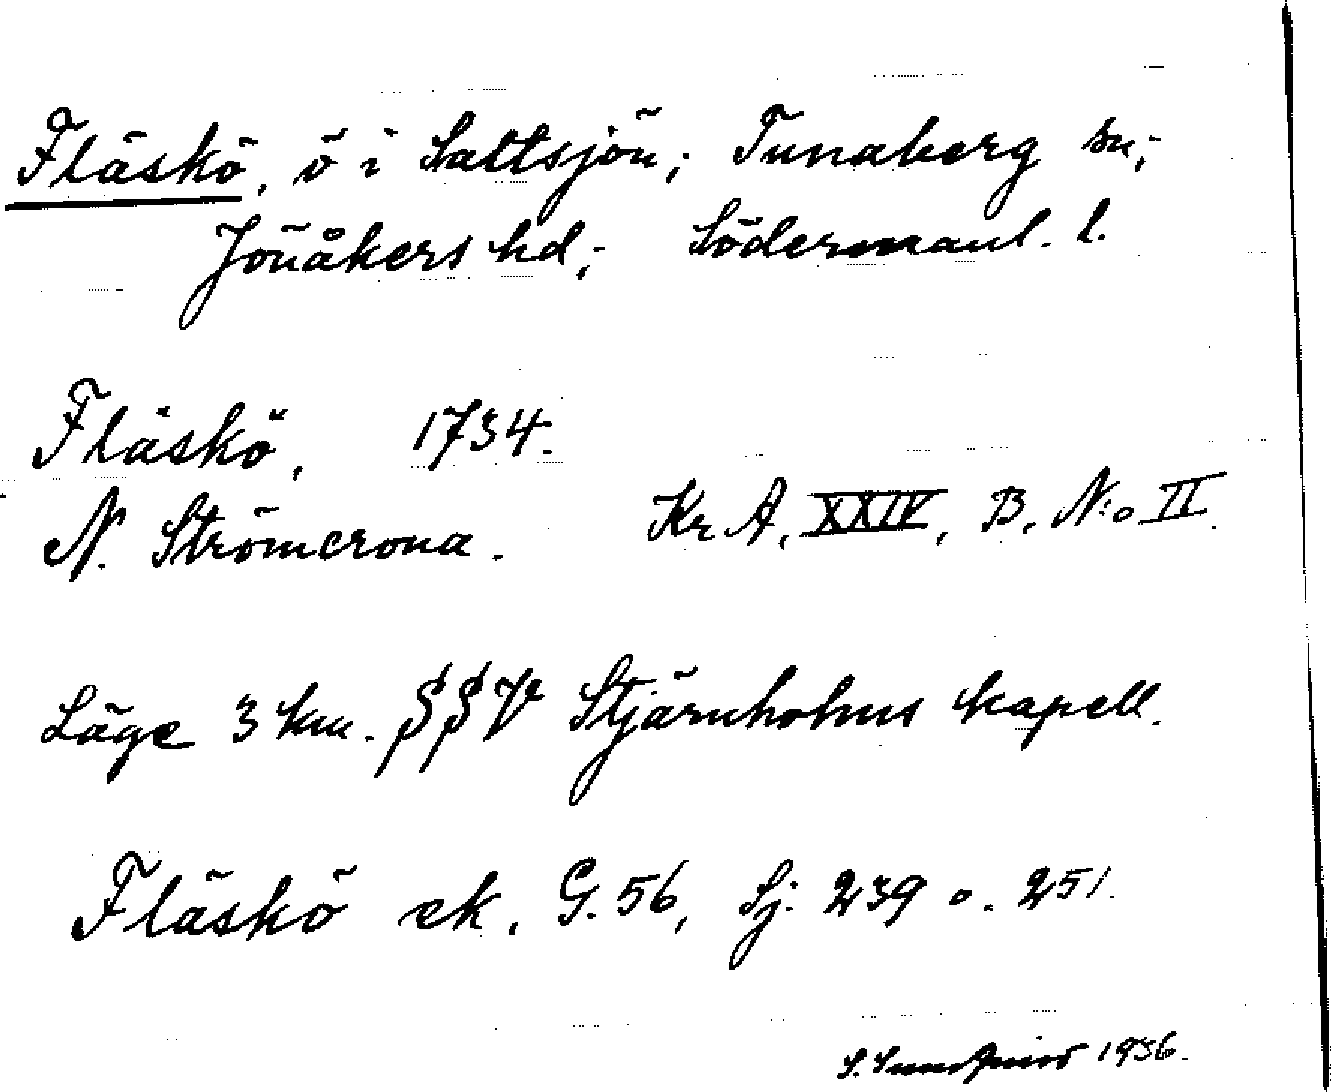 Fläskö, ö i Saltsjön; Tunaberg sn;
Jönåkers hd; Södermanl. l.
Fläskö, 1734.
N. Strömcrona. Kr A, XXIV, B, N:o II.
Läge 3 km. SSV Stjärnholms kapell.
Fläskö ek. G. 56, Sj: 239 o. 251.
S. 1936.